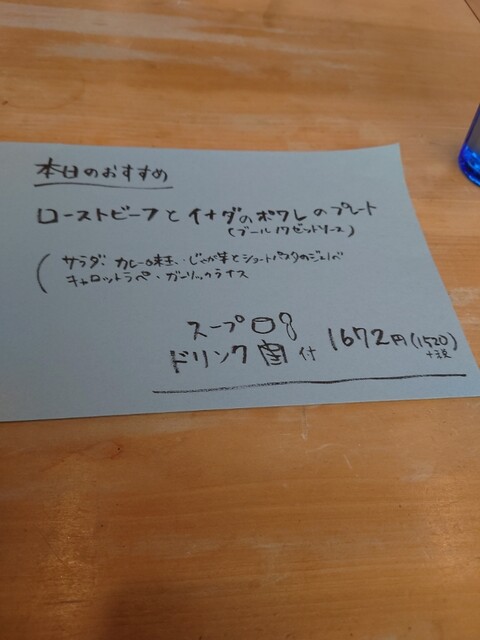 本日のおすすめ
ローストビーフとイナダのポワレのプレート
(ブールノワゼットソース)
(サラダ・カレー味玉・じゃが芋とショートパスタのジェノベ
キャロットラペ・ガーリックライス
スープ
ドリンク 付 1672円(1520)
+税